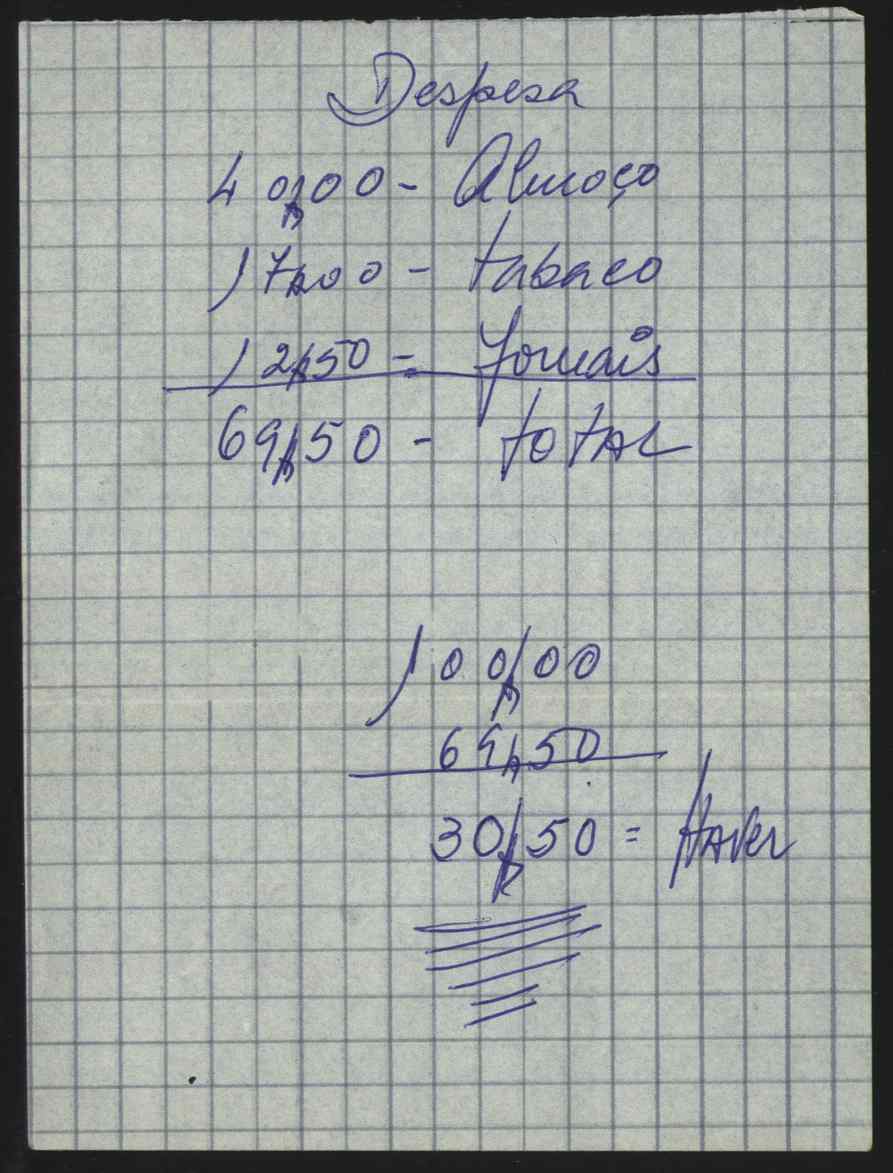 Despesa
40$00 - Almoço
17$00 - tabaco
12$50 - Jornais
69$50 - total
100$00
69$50
30$50 = Haver